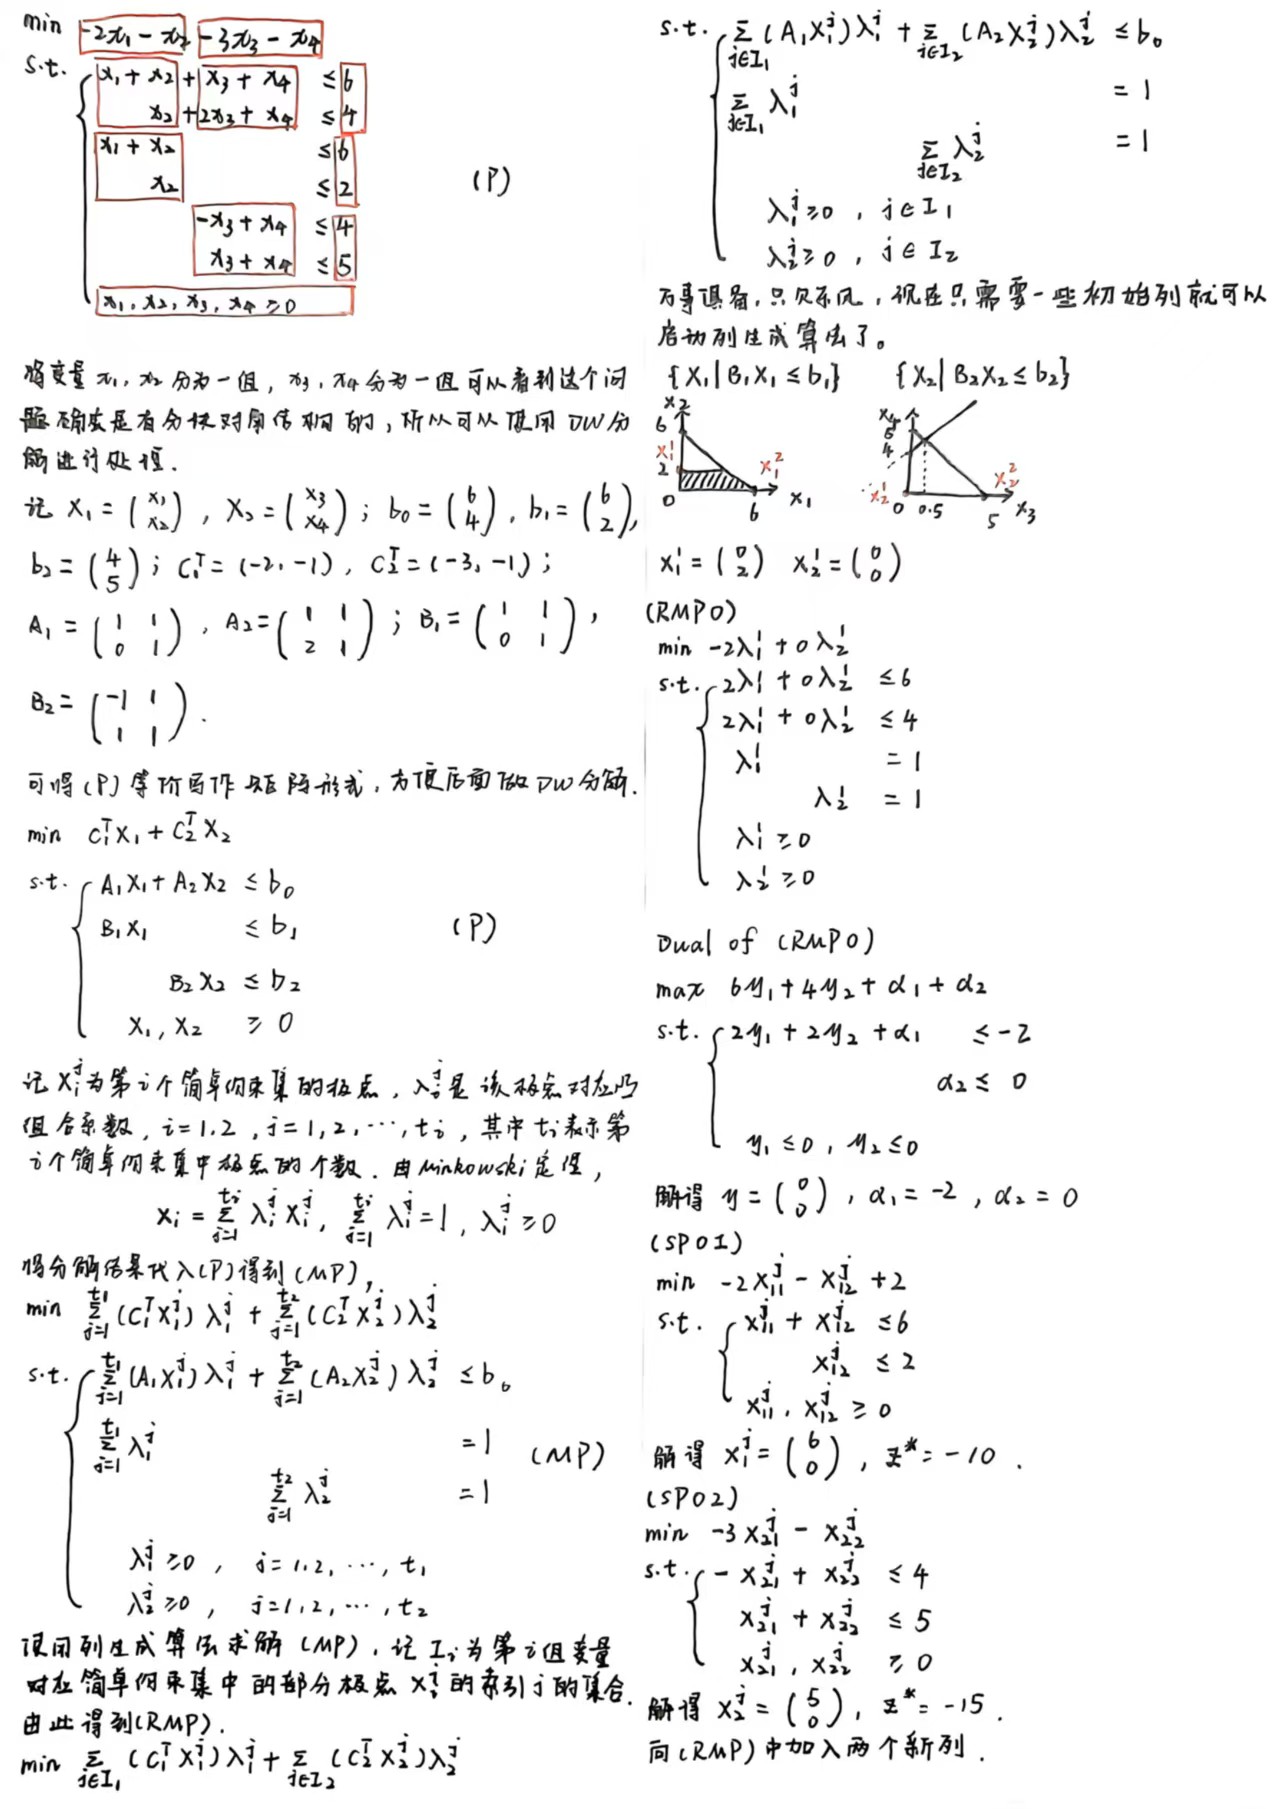 min -2x₁ - x₂ -3x₃ - x₄
s.t. x₁ + x₂ + x₃ + x₄ ≤ 6
x₂ + 2x₃ + x₄ ≤ 4
x₁ + x₂ ≤ 6
x₂ ≤ 2
(P)
-x₃ + x₄ ≤ 4
x₃ + x₄ ≤ 5
x₁, x₂, x₃, x₄ ≥ 0
将变量 x₁, x₂ 分为一组, x₃, x₄ 分为一组 可以看到这个问
题确实是有分块对角结构的, 所以可以使用 DW 分
解进行处理.
记 X₁ = (x₁ x₂), X₂ = (x₃ x₄); b₀ = (6 4), b₁ = (6 2),
b₂ = (4 5); C₁ᵀ = (-2, -1), C₂ᵀ = (-3, -1);
A₁ = (1 1 0 1), A₂ = (1 1 2 1); B₁ = (1 1 0 1),
B₂ = (-1 1 1 1).
可将 (P) 等价写作矩阵形式, 方便后面做 DW 分解.
min C₁ᵀX₁ + C₂ᵀX₂
s.t. A₁X₁ + A₂X₂ ≤ b₀
B₁X₁ ≤ b₁ (P)
B₂X₂ ≤ b₂
X₁, X₂ ≥ 0
记 Xᵢʲ 为第 i 个简单约束集的极点, λᵢʲ 是该极点对应的
组合系数, i = 1, 2, j = 1, 2, ⋯, tᵢ, 其中 tᵢ 表示第
i 个简单约束集中极点的个数. 由 Minkowski 定理,
Xᵢ = Σⱼ₌₁^{tᵢ} λᵢʲ Xᵢʲ, Σⱼ₌₁^{tᵢ} λᵢʲ = 1, λᵢʲ ≥ 0
将分解结果代入 (P) 得到 (MP),
min Σⱼ₌₁^{t₁} (C₁ᵀX₁ʲ) λ₁ʲ + Σⱼ₌₁^{t₂} (C₂ᵀX₂ʲ) λ₂ʲ
s.t. Σⱼ₌₁^{t₁} (A₁X₁ʲ) λ₁ʲ + Σⱼ₌₁^{t₂} (A₂X₂ʲ) λ₂ʲ ≤ b₀
Σⱼ₌₁^{t₁} λ₁ʲ = 1 (MP)
Σⱼ₌₁^{t₂} λ₂ʲ = 1
λ₁ʲ ≥ 0, j = 1, 2, ⋯, t₁
λ₂ʲ ≥ 0, j = 1, 2, ⋯, t₂
使用列生成算法求解 (MP), 记 Iᵢ 为第 i 组变量
对应简单约束集中的部分极点 Xᵢʲ 的索引 j 的集合.
由此得到 (RMP).
min Σ_{j∈I₁} (C₁ᵀX₁ʲ) λ₁ʲ + Σ_{j∈I₂} (C₂ᵀX₂ʲ) λ₂ʲ
s.t. Σ_{j∈I₁} (A₁X₁ʲ) λ₁ʲ + Σ_{j∈I₂} (A₂X₂ʲ) λ₂ʲ ≤ b₀
Σ_{j∈I₁} λ₁ʲ = 1
Σ_{j∈I₂} λ₂ʲ = 1
λ₁ʲ ≥ 0, j ∈ I₁
λ₂ʲ ≥ 0, j ∈ I₂
万事俱备, 只欠东风, 现在只需要一些初始列就可以
启动列生成算法了。
{X₁ | B₁X₁ ≤ b₁} {X₂ | B₂X₂ ≤ b₂}
x₂ 6 X₁¹ 2 0 X₁² 6 x₁
x₄ 5 4 X₂¹ 0 0.5 X₂² 5 x₃
X₁¹ = (0 2) X₂¹ = (0 0)
(RMP0)
min -2λ₁¹ + 0λ₂¹
s.t. 2λ₁¹ + 0λ₂¹ ≤ 6
2λ₁¹ + 0λ₂¹ ≤ 4
λ₁¹ = 1
λ₂¹ = 1
λ₁¹ ≥ 0
λ₂¹ ≥ 0
Dual of (RMP0)
max 6y₁ + 4y₂ + α₁ + α₂
s.t. 2y₁ + 2y₂ + α₁ ≤ -2
α₂ ≤ 0
y₁ ≤ 0, y₂ ≤ 0
解得 y = (0 0), α₁ = -2, α₂ = 0
(SP01)
min -2X₁₁ʲ - X₁₂ʲ + 2
s.t. X₁₁ʲ + X₁₂ʲ ≤ 6
X₁₂ʲ ≤ 2
X₁₁ʲ, X₁₂ʲ ≥ 0
解得 X₁ʲ = (6 0), z* = -10.
(SP02)
min -3X₂₁ʲ - X₂₂ʲ
s.t. -X₂₁ʲ + X₂₂ʲ ≤ 4
X₂₁ʲ + X₂₂ʲ ≤ 5
X₂₁ʲ, X₂₂ʲ ≥ 0
解得 X₂ʲ = (5 0), z* = -15.
向 (RMP) 中加入两个新列.